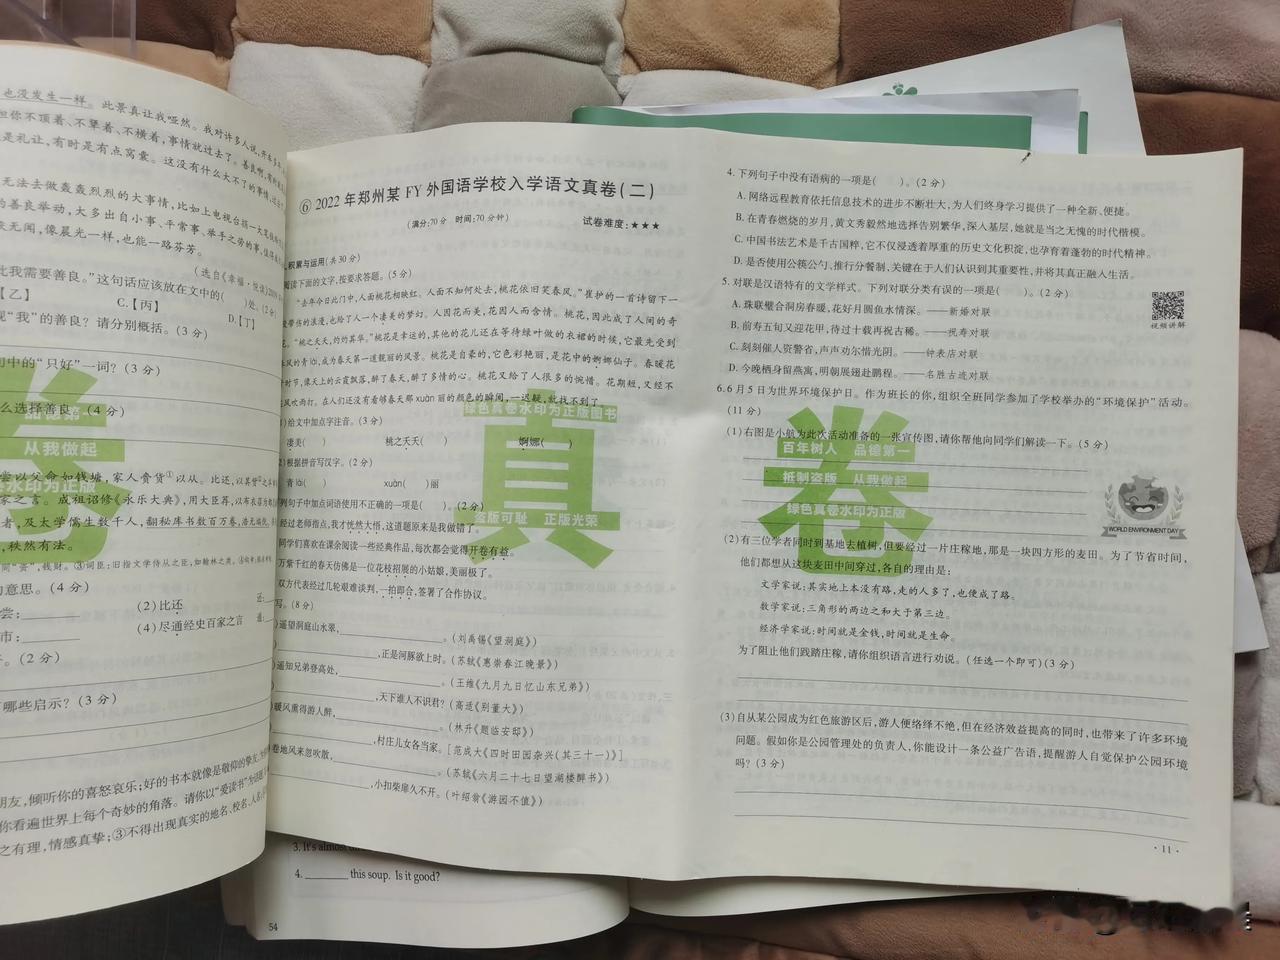 也没发生一样。此景真让我哑然。我对许多人说,
但你不顶着、不犟着、不横着,事情就过去了。善良啊,
是礼让,有时是有点窝囊。这没有什么大不了的事情,
无法去做轰轰烈烈的大事情,比如上电视台捐一大笔
的善良举动,大多出自小事、平常事、举手之劳的事,
默无闻,像晨光一样,也能一路芬芳。
(选自《幸福·悦读》
此我需要善良。”这句话应该放在文中的( )处。(2分)
【乙】 C.【丙】 D.【丁】
现“我”的善良?请分别概括。(3分)
句中的“只好”一词?(3分)
么选择善良。(4分)
品德第一
从我做起
水印为正版
尝以父命如钱塘,家人赍货①以从。比还,以其赀
家之言。成祖诏修《永乐大典》,用大臣荐,以布衣
者,及太学儒生数千人,翻秘库书数百万卷,浩无端
,秩然有法。
赍”,钱财。③词臣:旧指文学侍从之臣,如翰林之类。
的意思。(4分)
尝:________ (2)比还 还:
市:________ (4)尽通经史百家之言 通:
。(2分)
哪些启示?(3分)
朋友,倾听你的喜怒哀乐;好的书本就像是敬仰的挚友,
你看遍世界上每个奇妙的角落。请你以“爱读书”为话题
之有理,情感真挚;③不得出现真实的地名、校名、人名
⑥ 2022年郑州某FY外国语学校入学语文真卷(二)
(满分:70分 时间:70分钟) 试卷难度:★★★
积累与运用(共30分)
阅读下面的文字,按要求答题。(5分)
“去年今日此门中,人面桃花相映红。人面不知何处去,桃花依旧笑春风。”崔护的一首诗留下一
带伤的浪漫,也给了人一个凄美的梦幻。人因花而美,花因人而含情。桃花,因此成了人间的奇
“桃之夭夭,灼灼其华。”桃花是幸运的,其他的花儿还在等待绿叶做的衣裙的时候,它最先受到
风的青lài,成为春天第一道靓丽的风景。桃花是自豪的,它色彩艳丽,是花中的婀娜仙子。春暖花
时节,漫天上的云霞飘落,醉了春天,醉了多情的心。桃花又给了人很多的惋惜。花期短,又经不
风吹雨打。在人们还没有看够春天那xuàn丽的颜色的瞬间,一迟疑,就找不到了。
绿色真卷水印为正版图书
真
盗版可耻 正版光荣
1)给文中加点字注音。(3分)
凄美( ) 桃之夭夭( ) 婀娜( )
2)根据拼音写汉字。(2分)
青lài( ) xuàn( )丽
列句子中加点词语使用不正确的一项是( )。(2分)
经过老师指点,我才恍然大悟,这道题原来是我做错了。
同学们喜欢在课余阅读一些经典作品,每次都会觉得开卷有益。
万紫千红的春天仿佛是一位花枝招展的小姑娘,美丽极了。
双方代表经过几轮艰难谈判,一拍即合,签署了合作协议。
写。(8分)
遥望洞庭山水翠,________。(刘禹锡《望洞庭》)
________,正是河豚欲上时。(苏轼《惠崇春江晚景》)
遥知兄弟登高处,________。(王维《九月九日忆山东兄弟》)
________,天下谁人不识君?(高适《别董大》)
暖风熏得游人醉,________。(林升《题临安邸》)
________,村庄儿女各当家。[范成大《四时田园杂兴(其三十一)》]
卷地风来忽吹散,________。(苏轼《六月二十七日望湖楼醉书》)
________,小扣柴扉久不开。(叶绍翁《游园不值》)
4.下列句子中没有语病的一项是( )。(2分)
A.网络远程教育依托信息技术的进步不断壮大,为人们终身学习提供了一种全新、便捷。
B.在青春燃烧的岁月,黄文秀毅然地选择告别繁华,深入基层,她就是当之无愧的时代楷模。
C.中国书法艺术是千古国粹,它不仅浸透着厚重的历史文化积淀,也孕育着蓬勃的时代精神。
D.是否使用公筷公勺、推行分餐制,关键在于人们认识到其重要性,并将其真正融入生活。
5.对联是汉语特有的文学样式。下列对联分类有误的一项是( )。(2分)
A.珠联璧合洞房春暖,花好月圆鱼水情深。——新婚对联
B.前寿五旬又迎花甲,待过十载再祝古稀。——祝寿对联
C.刻刻催人资警省,声声劝尔惜光阴。——钟表店对联
D.今晚栖身留燕寓,明朝展翅赴鹏程。——名胜古迹对联
视频讲解
6.6月5日为世界环境保护日。作为班长的你,组织全班同学参加了学校举办的“环境保护”活动。
(11分)
(1)右图是小航为此次活动准备的一张宣传图,请你帮他向同学们解读一下。(5分)
卷
百年树人 品德第一
抵制盗版 从我做起
绿色真卷水印为正版
WORLD ENVIRONMENT DAY
(2)有三位学者同时到基地去植树,但要经过一片庄稼地,那是一块四方形的麦田。为了节省时间,
他们都想从这块麦田中间穿过,各自的理由是:
文学家说:其实地上本没有路,走的人多了,也便成了路。
数学家说:三角形的两边之和大于第三边。
经济学家说:时间就是金钱,时间就是生命。
为了阻止他们践踏庄稼,请你组织语言进行劝说。(任选一个即可)(3分)
(3)自从某公园成为红色旅游区后,游人便络绎不绝,但在经济效益提高的同时,也带来了许多环境
问题。假如你是公园管理处的负责人,你能设计一条公益广告语,提醒游人自觉保护公园环境
吗?(3分)
·11·
3. It's almost
4. ________ this soup. Is it good?
54